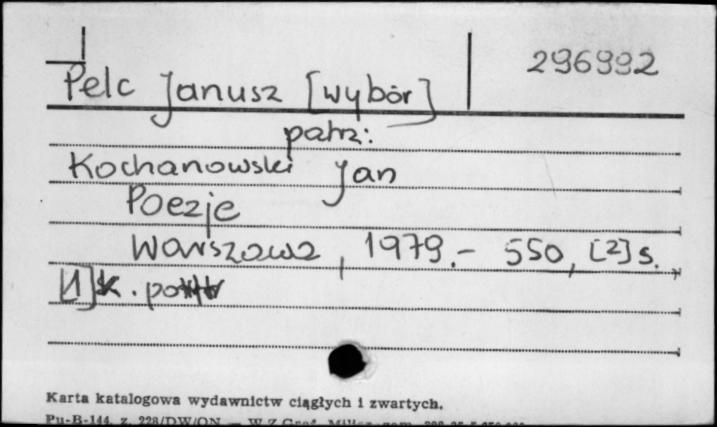 296992
Pelc Janusz [wybór]
patrz:
Kochanowski Jan
Poezje
Warszawa, 1979.- 550, [2] s.,
[1] k. portr
Karta katalogowa wydawnictw ciągłych i zwartych.
Pu-B-144, z. 228/DW/ON —